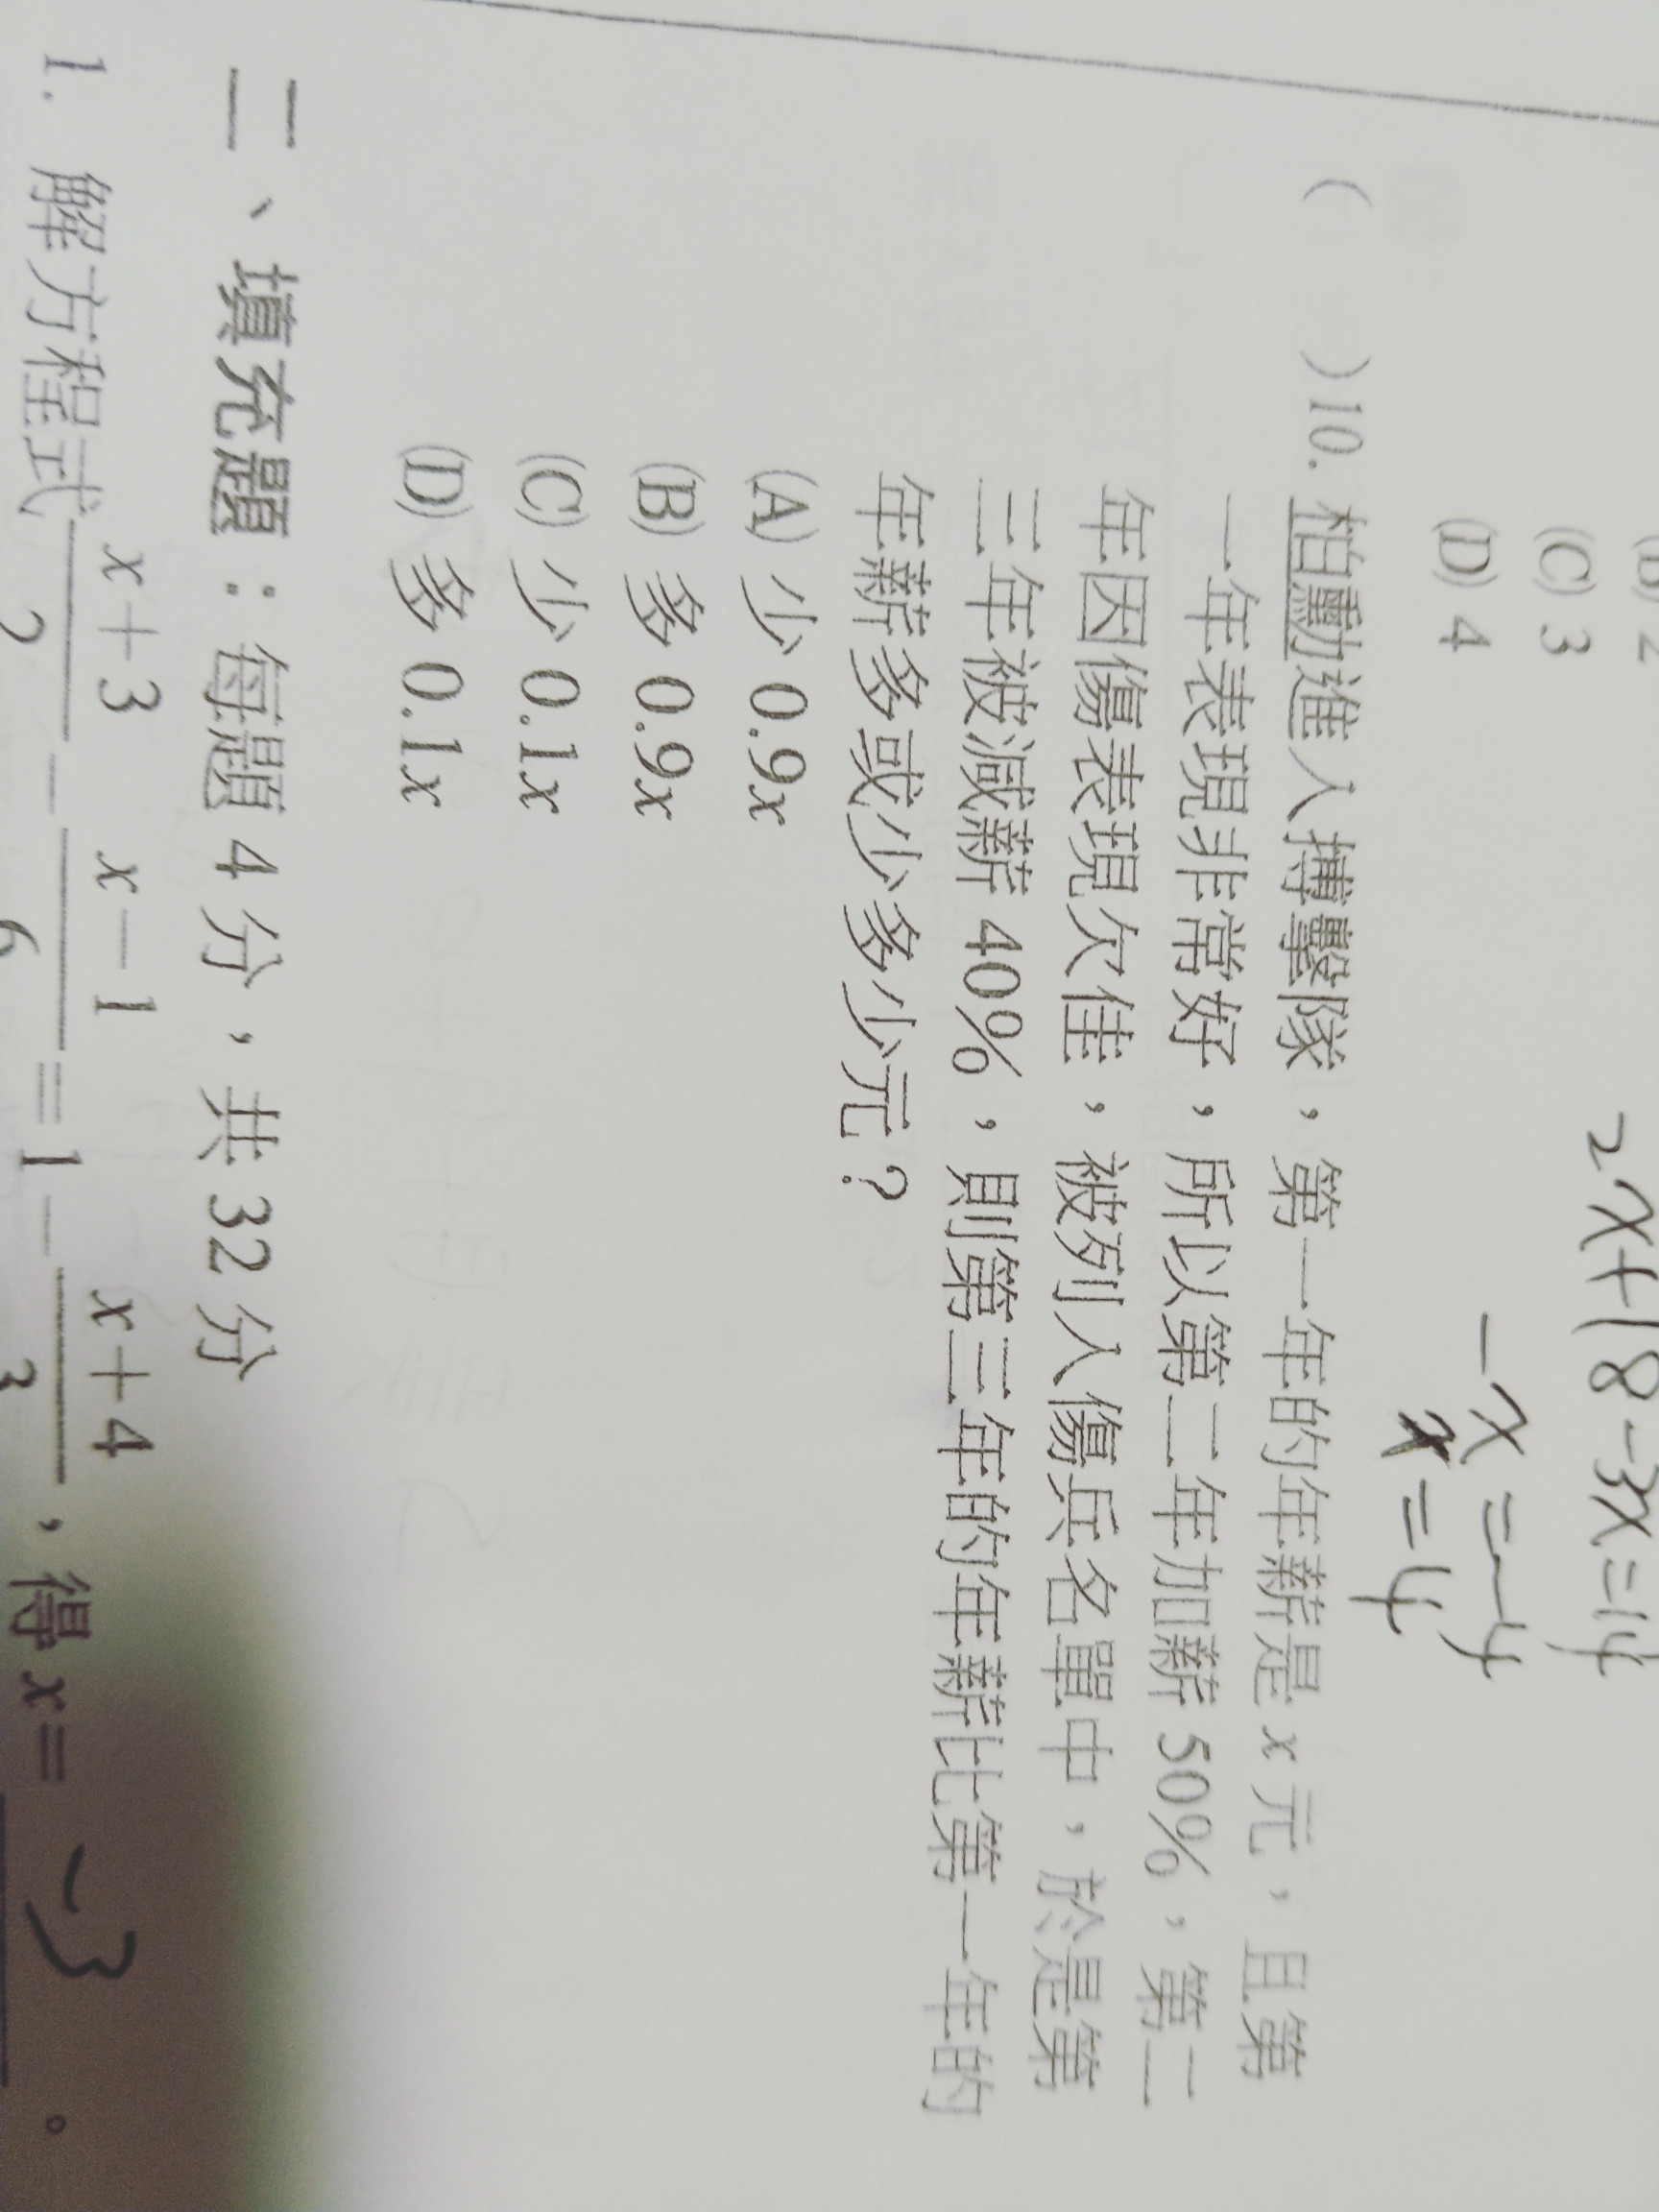 (C) 3
(D) 4
2x+18-3x=14
-x=-4
x=4
( )10. 柏勳進入搏擊隊，第一年的年薪是 x 元，且第
一年表現非常好，所以第二年加薪 50%，第二
年因傷表現欠佳，被列入傷兵名單中，於是第
三年被減薪 40%，則第三年的年薪比第一年的
年薪多或少多少元？
(A) 少 0.9x
(B) 多 0.9x
(C) 少 0.1x
(D) 多 0.1x
二、填充題：每題 4 分，共 32 分
1. 解方程式 (x+3)/2 - (x-1)/6 = 1 - (x+4)/3，得 x = -3。